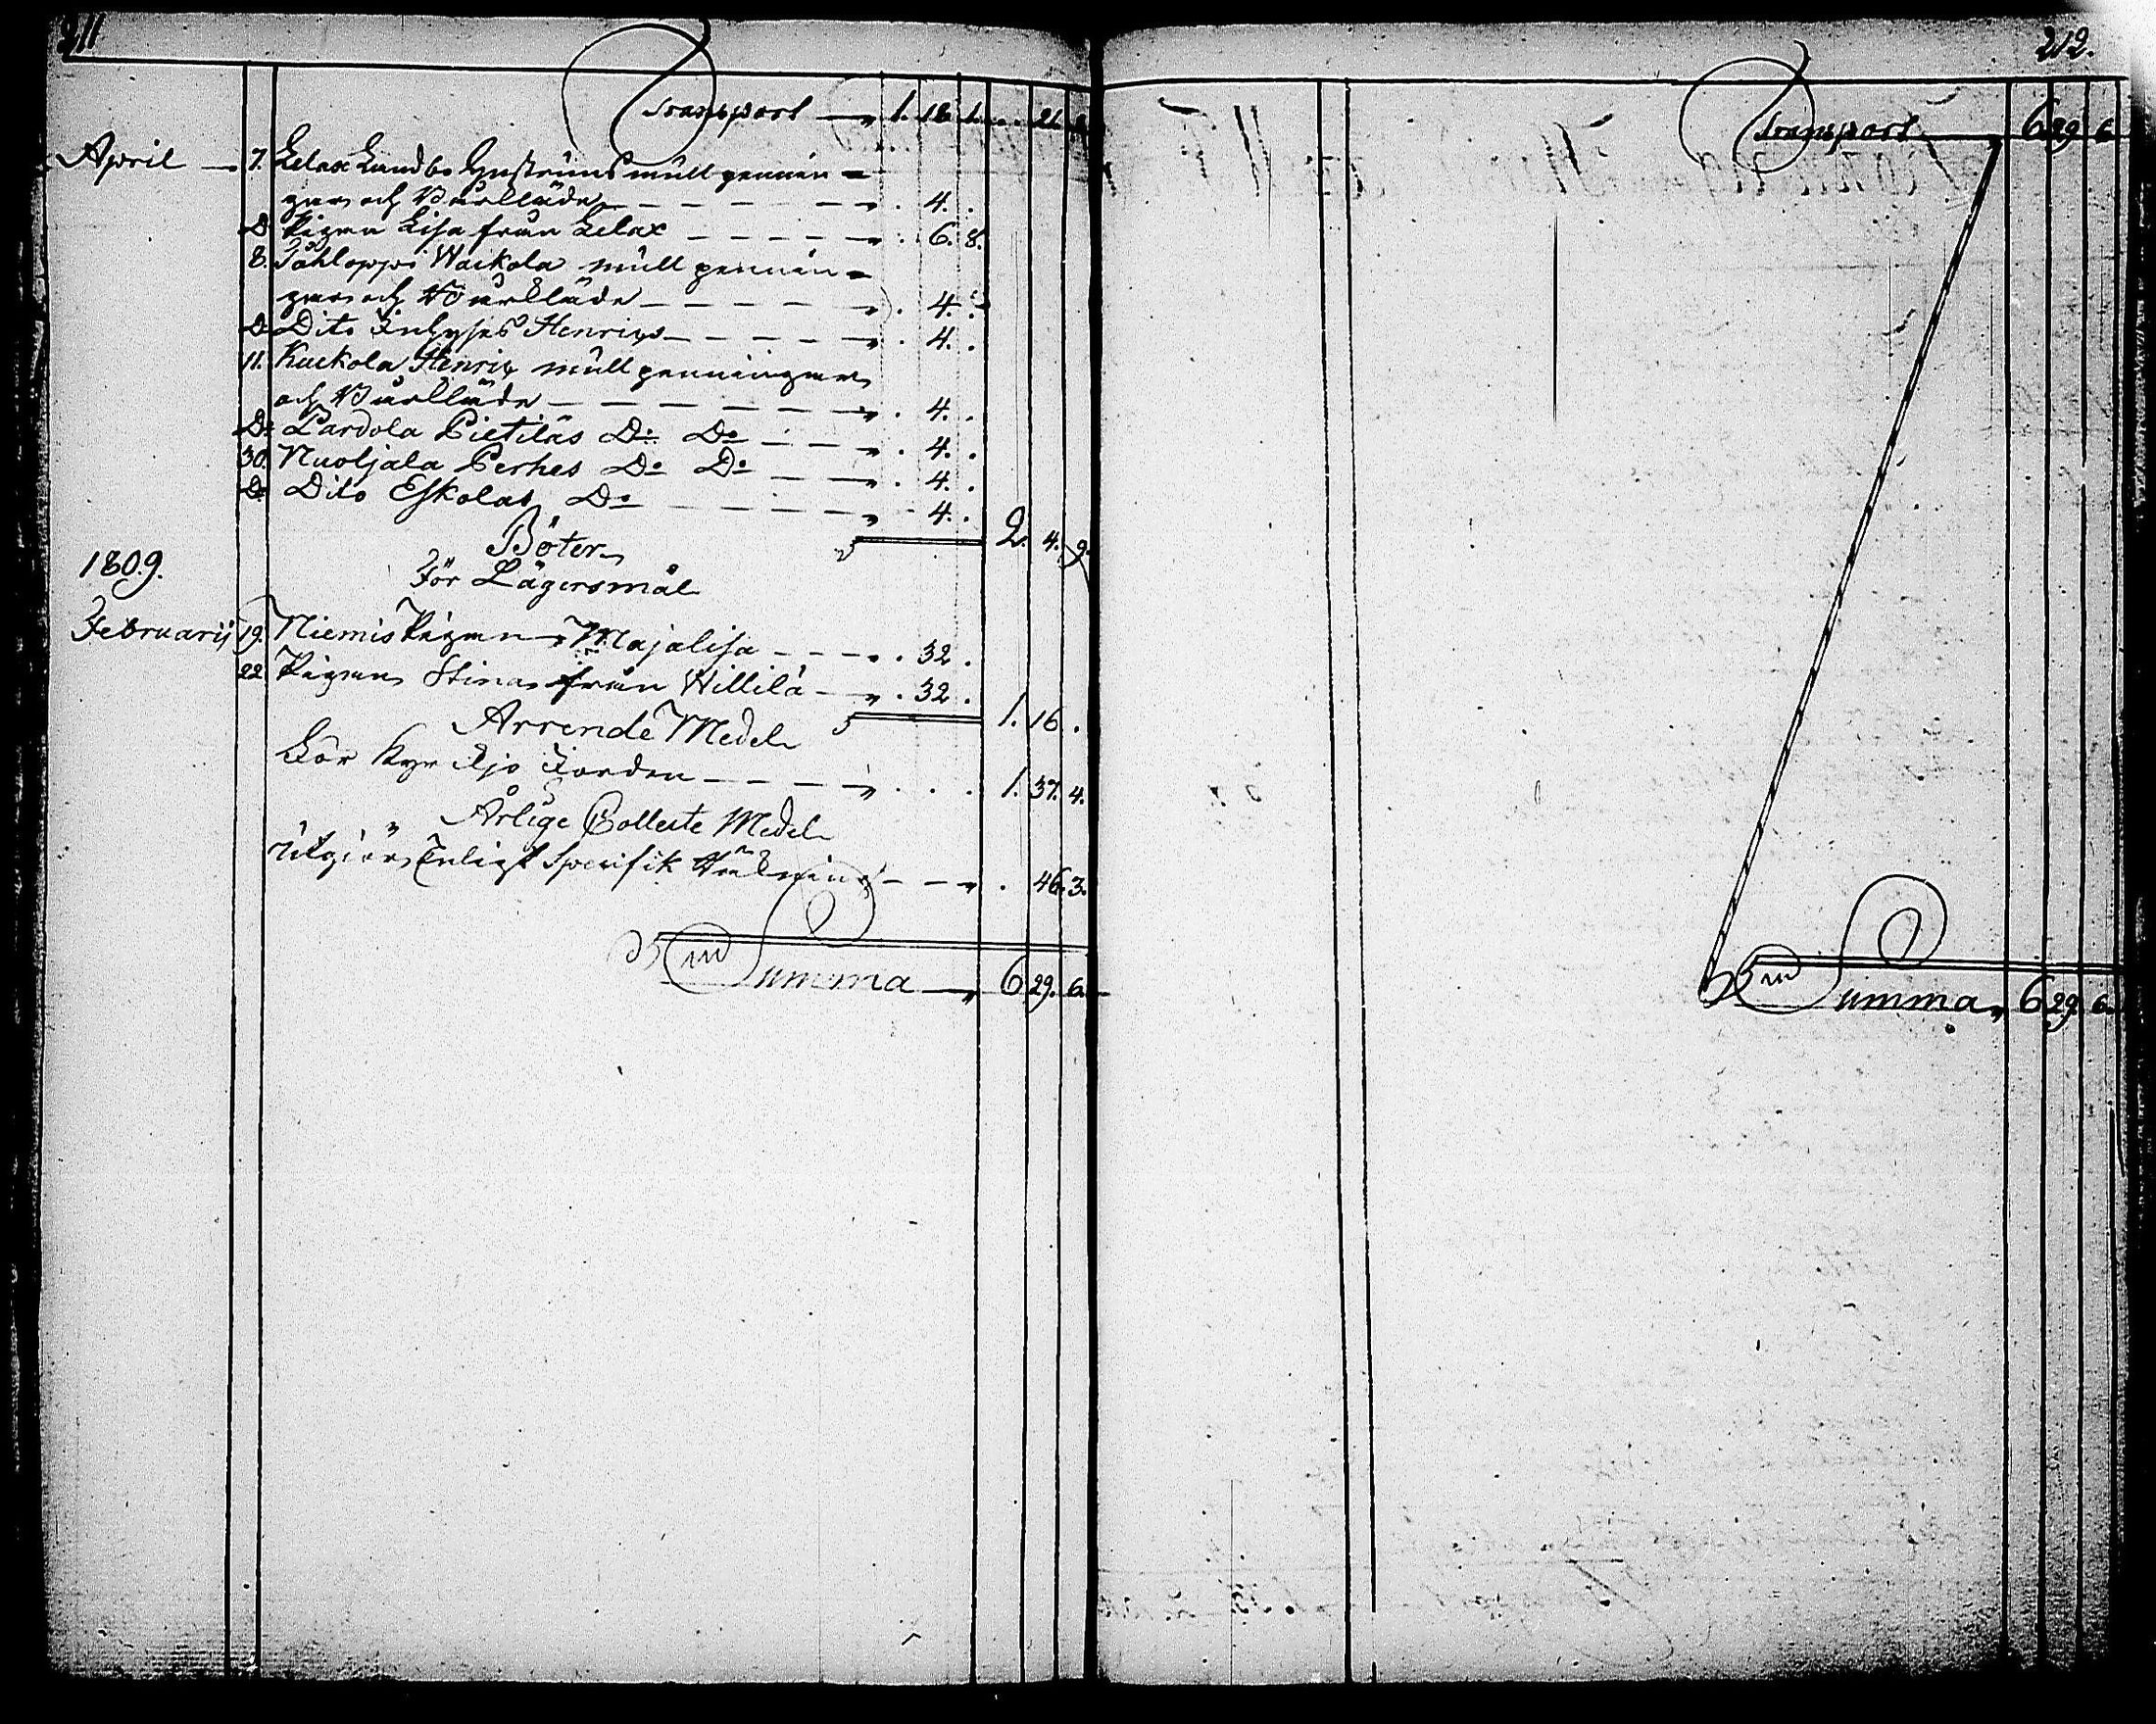 211
Transport — 1. 18. 1. . 21.
April — 7. Lelax Lundbo Gustavus mull pennin=
gar och Bårkläde — . 4. .
D:o Pigan Lisa från Lelax — . 6. 8.
8. Jåhloppi Waekola mull pennin=
gar och Bårkläde — . 4. .
D:o Dito Inhyses Henrics — . 4. .
11. Kuckola Henric mull penningar
och Bårkläde — . 4. .
D:o Pardola Pietiläs D:o D:o — . 4. .
30. Nuoljala Perhes D:o D:o — . 4. .
D:o Dito Eskolas D:o — . 4. . 2. 4. 9.
Böter
1809. För Lägersmål
Februarij 19. Niemis Pigan Majalisa — . 32 .
22. Pigan Stina från Willilä — . 32 . 1. 16 .
Arrende Medel
För Kyrckjo Jorden — . . . 1. 37. 4.
Årlige Collecte Medel
Utgiör Enligt Specifik Räkning — . 46. 3.
Summa — 6 29. 6.
212.
Transport — 6 29 6
Summa 6 29. 6.